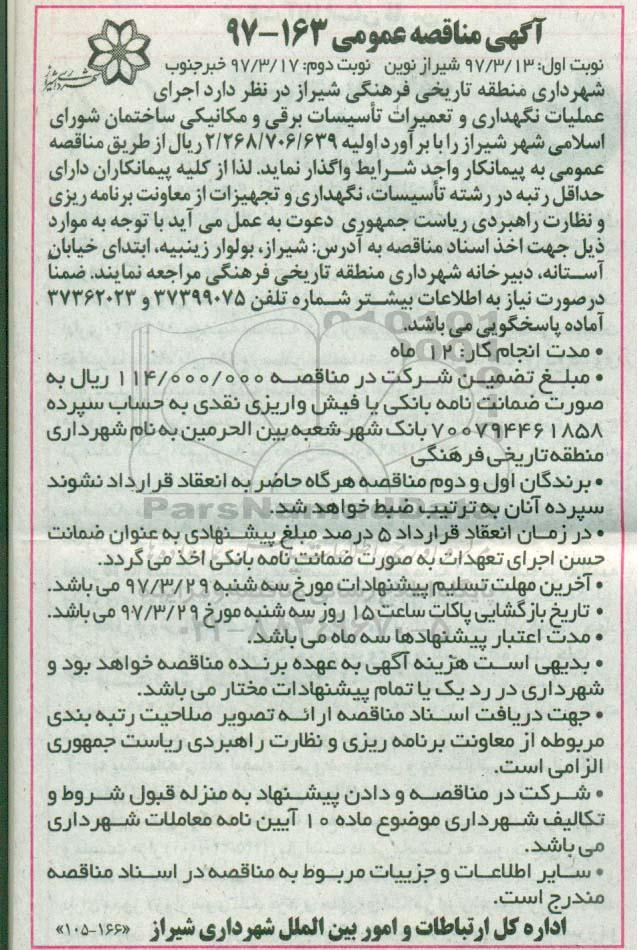 آگهی مناقصه عمومی ۱۶۳-۹۷
نوبت اول: ۹۷/۳/۱۳ شیراز نوین نوبت دوم: ۹۷/۳/۱۷ خبرجنوب
شهرداری منطقه تاریخی فرهنگی شیراز در نظر دارد اجرای
عملیات نگهداری و تعمیرات تأسیسات برقی و مکانیکی ساختمان شورای
اسلامی شهر شیراز را با برآورد اولیه ۲/۲۶۸/۷۰۶/۶۳۹ ریال از طریق مناقصه
عمومی به پیمانکار واجد شرایط واگذار نماید. لذا از کلیه پیمانکاران دارای
حداقل رتبه در رشته تأسیسات، نگهداری و تجهیزات از معاونت برنامه ریزی
و نظارت راهبردی ریاست جمهوری دعوت به عمل می آید با توجه به موارد
ذیل جهت اخذ اسناد مناقصه به آدرس: شیراز، بولوار زینبیه، ابتدای خیابان
آستانه، دبیرخانه شهرداری منطقه تاریخی فرهنگی مراجعه نمایند. ضمناً
درصورت نیاز به اطلاعات بیشتر شماره تلفن ۳۷۳۹۹۰۷۵ و ۳۷۳۶۲۰۲۳
آماده پاسخگویی می باشد.
• مدت انجام کار: ۱۲ ماه
• مبلغ تضمین شرکت در مناقصه ۱۱۴/۰۰۰/۰۰۰ ریال به
صورت ضمانت نامه بانکی یا فیش واریزی نقدی به حساب سپرده
۷۰۰۷۹۴۴۶۱۸۵۸ بانک شهر شعبه بین الحرمین به نام شهرداری
منطقه تاریخی فرهنگی
• برندگان اول و دوم مناقصه هرگاه حاضر به انعقاد قرارداد نشوند
سپرده آنان به ترتیب ضبط خواهد شد.
• در زمان انعقاد قرارداد ۵ درصد مبلغ پیشنهادی به عنوان ضمانت
حسن اجرای تعهدات به صورت ضمانت نامه بانکی اخذ می گردد.
• آخرین مهلت تسلیم پیشنهادات مورخ سه شنبه ۹۷/۳/۲۹ می باشد.
• تاریخ بازگشایی پاکات ساعت ۱۵ روز سه شنبه مورخ ۹۷/۳/۲۹ می باشد.
• مدت اعتبار پیشنهادها سه ماه می باشد.
• بدیهی است هزینه آگهی به عهده برنده مناقصه خواهد بود و
شهرداری در رد یک یا تمام پیشنهادات مختار می باشد.
• جهت دریافت اسناد مناقصه ارائه تصویر صلاحیت رتبه بندی
مربوطه از معاونت برنامه ریزی و نظارت راهبردی ریاست جمهوری
الزامی است.
• شرکت در مناقصه و دادن پیشنهاد به منزله قبول شروط و
تکالیف شهرداری موضوع ماده ۱۰ آیین نامه معاملات شهرداری
می باشد.
• سایر اطلاعات و جزییات مربوط به مناقصه در اسناد مناقصه
مندرج است.
اداره کل ارتباطات و امور بین الملل شهرداری شیراز «۱۶۶-۱۰۵»